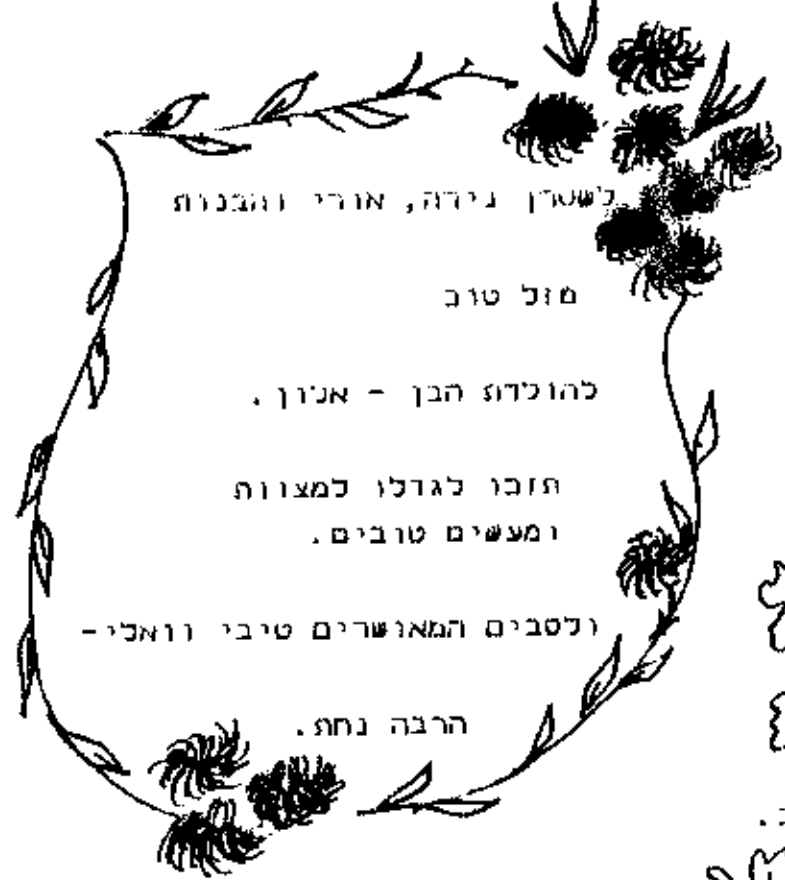 לשטרן גירה, אורי והבנות
מזל טוב
להולדת הבן - אלון.
תזכו לגדלו למצוות
ומעשים טובים.
ולסבים המאושרים טיבי וואלי-
הרבה נחת.